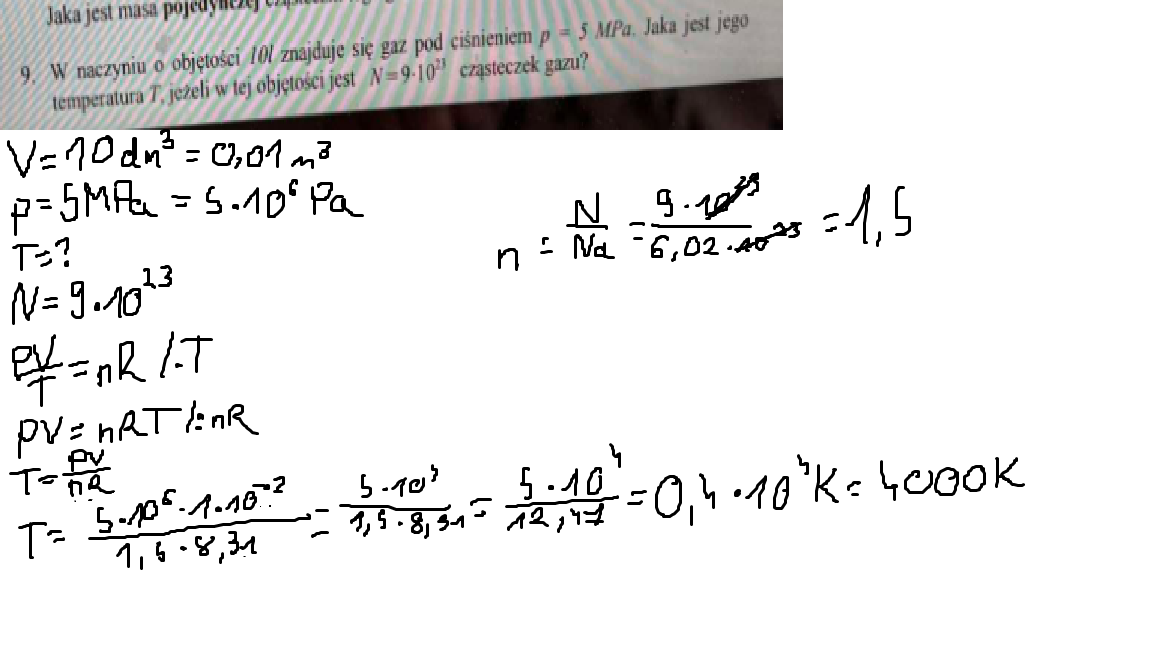 Jaka jest masa pojedynczej
9. W naczyniu o objętości 10l znajduje się gaz pod ciśnieniem p = 5 MPa. Jaka jest jego
temperatura T, jeżeli w tej objętości jest N=9·10²³ cząsteczek gazu?
V=10dm³=0,01m³
p=5MPa=5·10⁶Pa
T=?
N=9·10²³
n=N/Na=9·10²³/6,02·10²³=1,5
pV/T=nR /·T
pV=nRT/:nR
T=pV/nR
T=5·10⁶·1·10⁻²/1,5·8,31=5·10⁴/1,5·8,31=5·10⁴/12,47=0,4·10⁴K=4000K